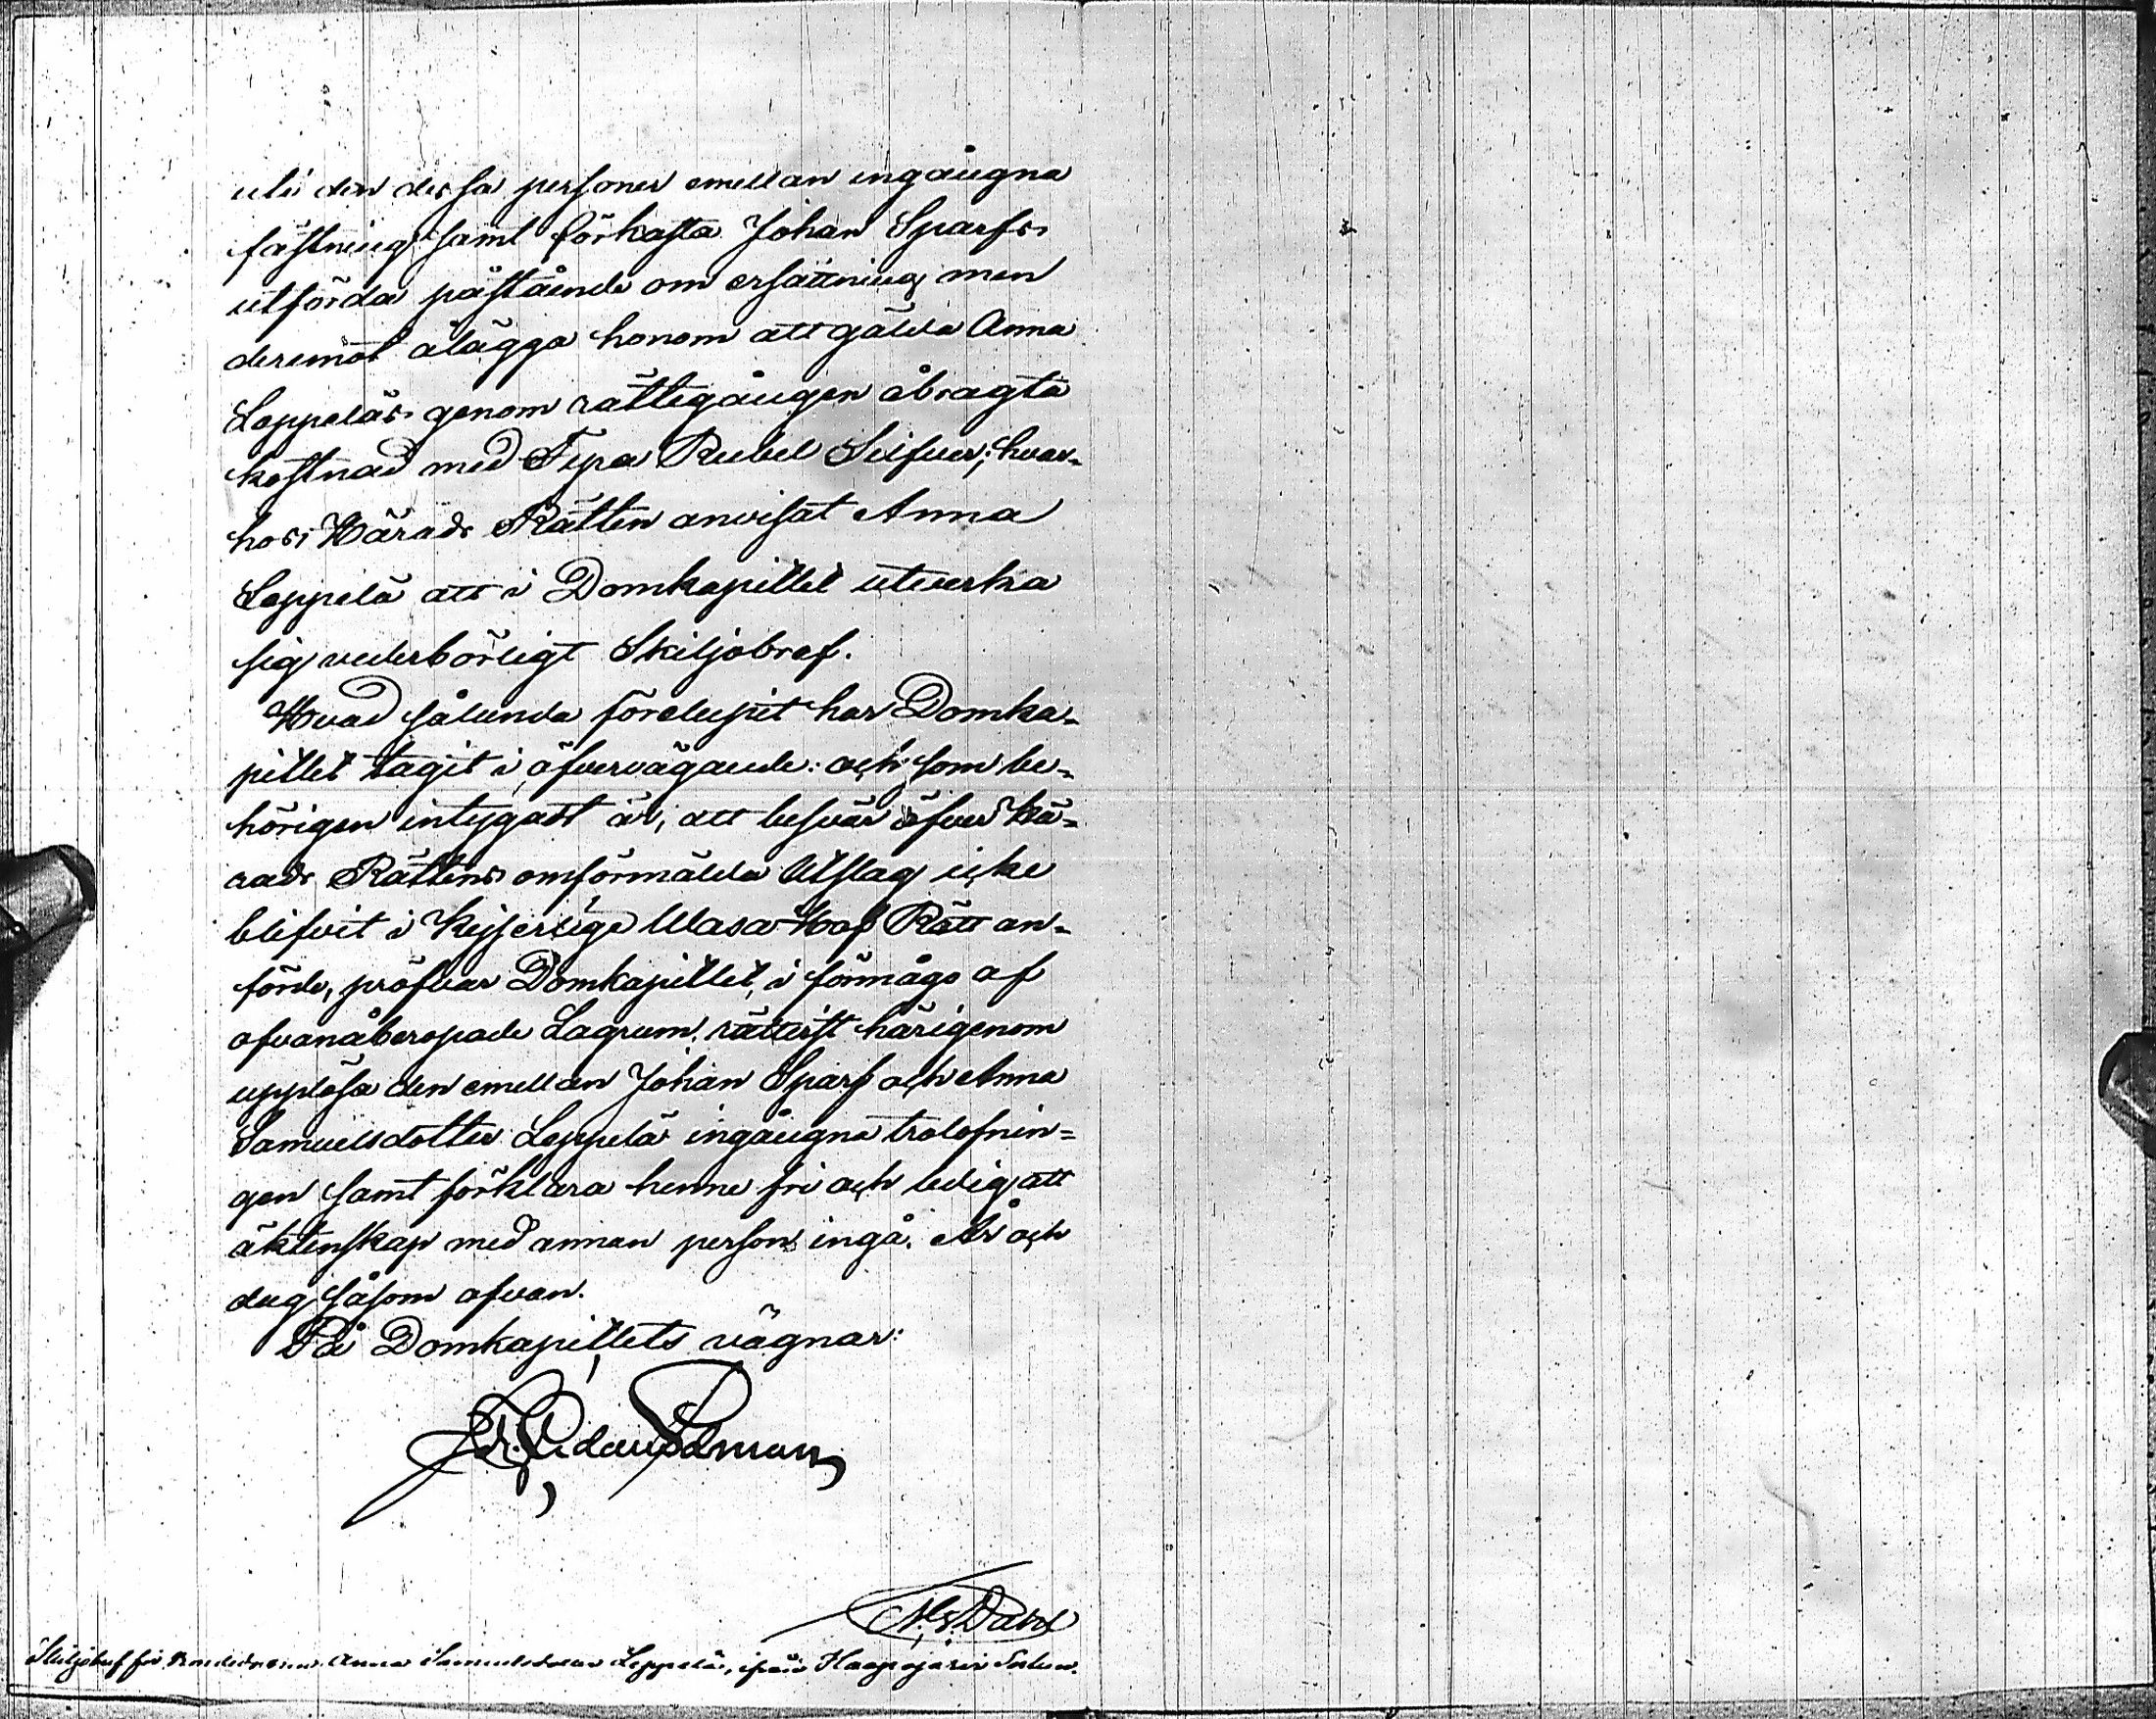 uti den dessa personer emellan ingångna
fästning samt förkasta Johan Sparfs
utförda påstående om ersättning men
deremot ålägga honom att gälda Anna
Leppeläs genom rättegången åbragta
kostnad med Fyra Rubel Silfver; hvar-
hos Härads Rätten anvisat Anna
Leppelä att i Domkapitlet utverka
sig vederbörligt Skiljobref.
Hvad sålunda förelupit har Domka-
pitlet tagit i öfvervägande: och som be-
hörigen intygadt är, att besvär öfver Hä-
rads Rättens omförmälda Utslag icke
blifvit i Kejserliga Wasa Hof Rätt an-
förde, pröfvar Domkapitlet, i förmågo af
ofvanåberopade Lagrum, rättvist härigenom
upplösa den emellan Johan Sparf och Anna
Samuelsdotter Leppelä ingångna trolofnin=
gen samt förklara henne fri och ledig att
äktenskap med annan person ingå. År och
dag såsom ofvan.
På Domkapitlets vägnar:
Dahl
Skiljobref för Anna Samuelsdotter Leppelä, ifrån Haapajärvi Socken.